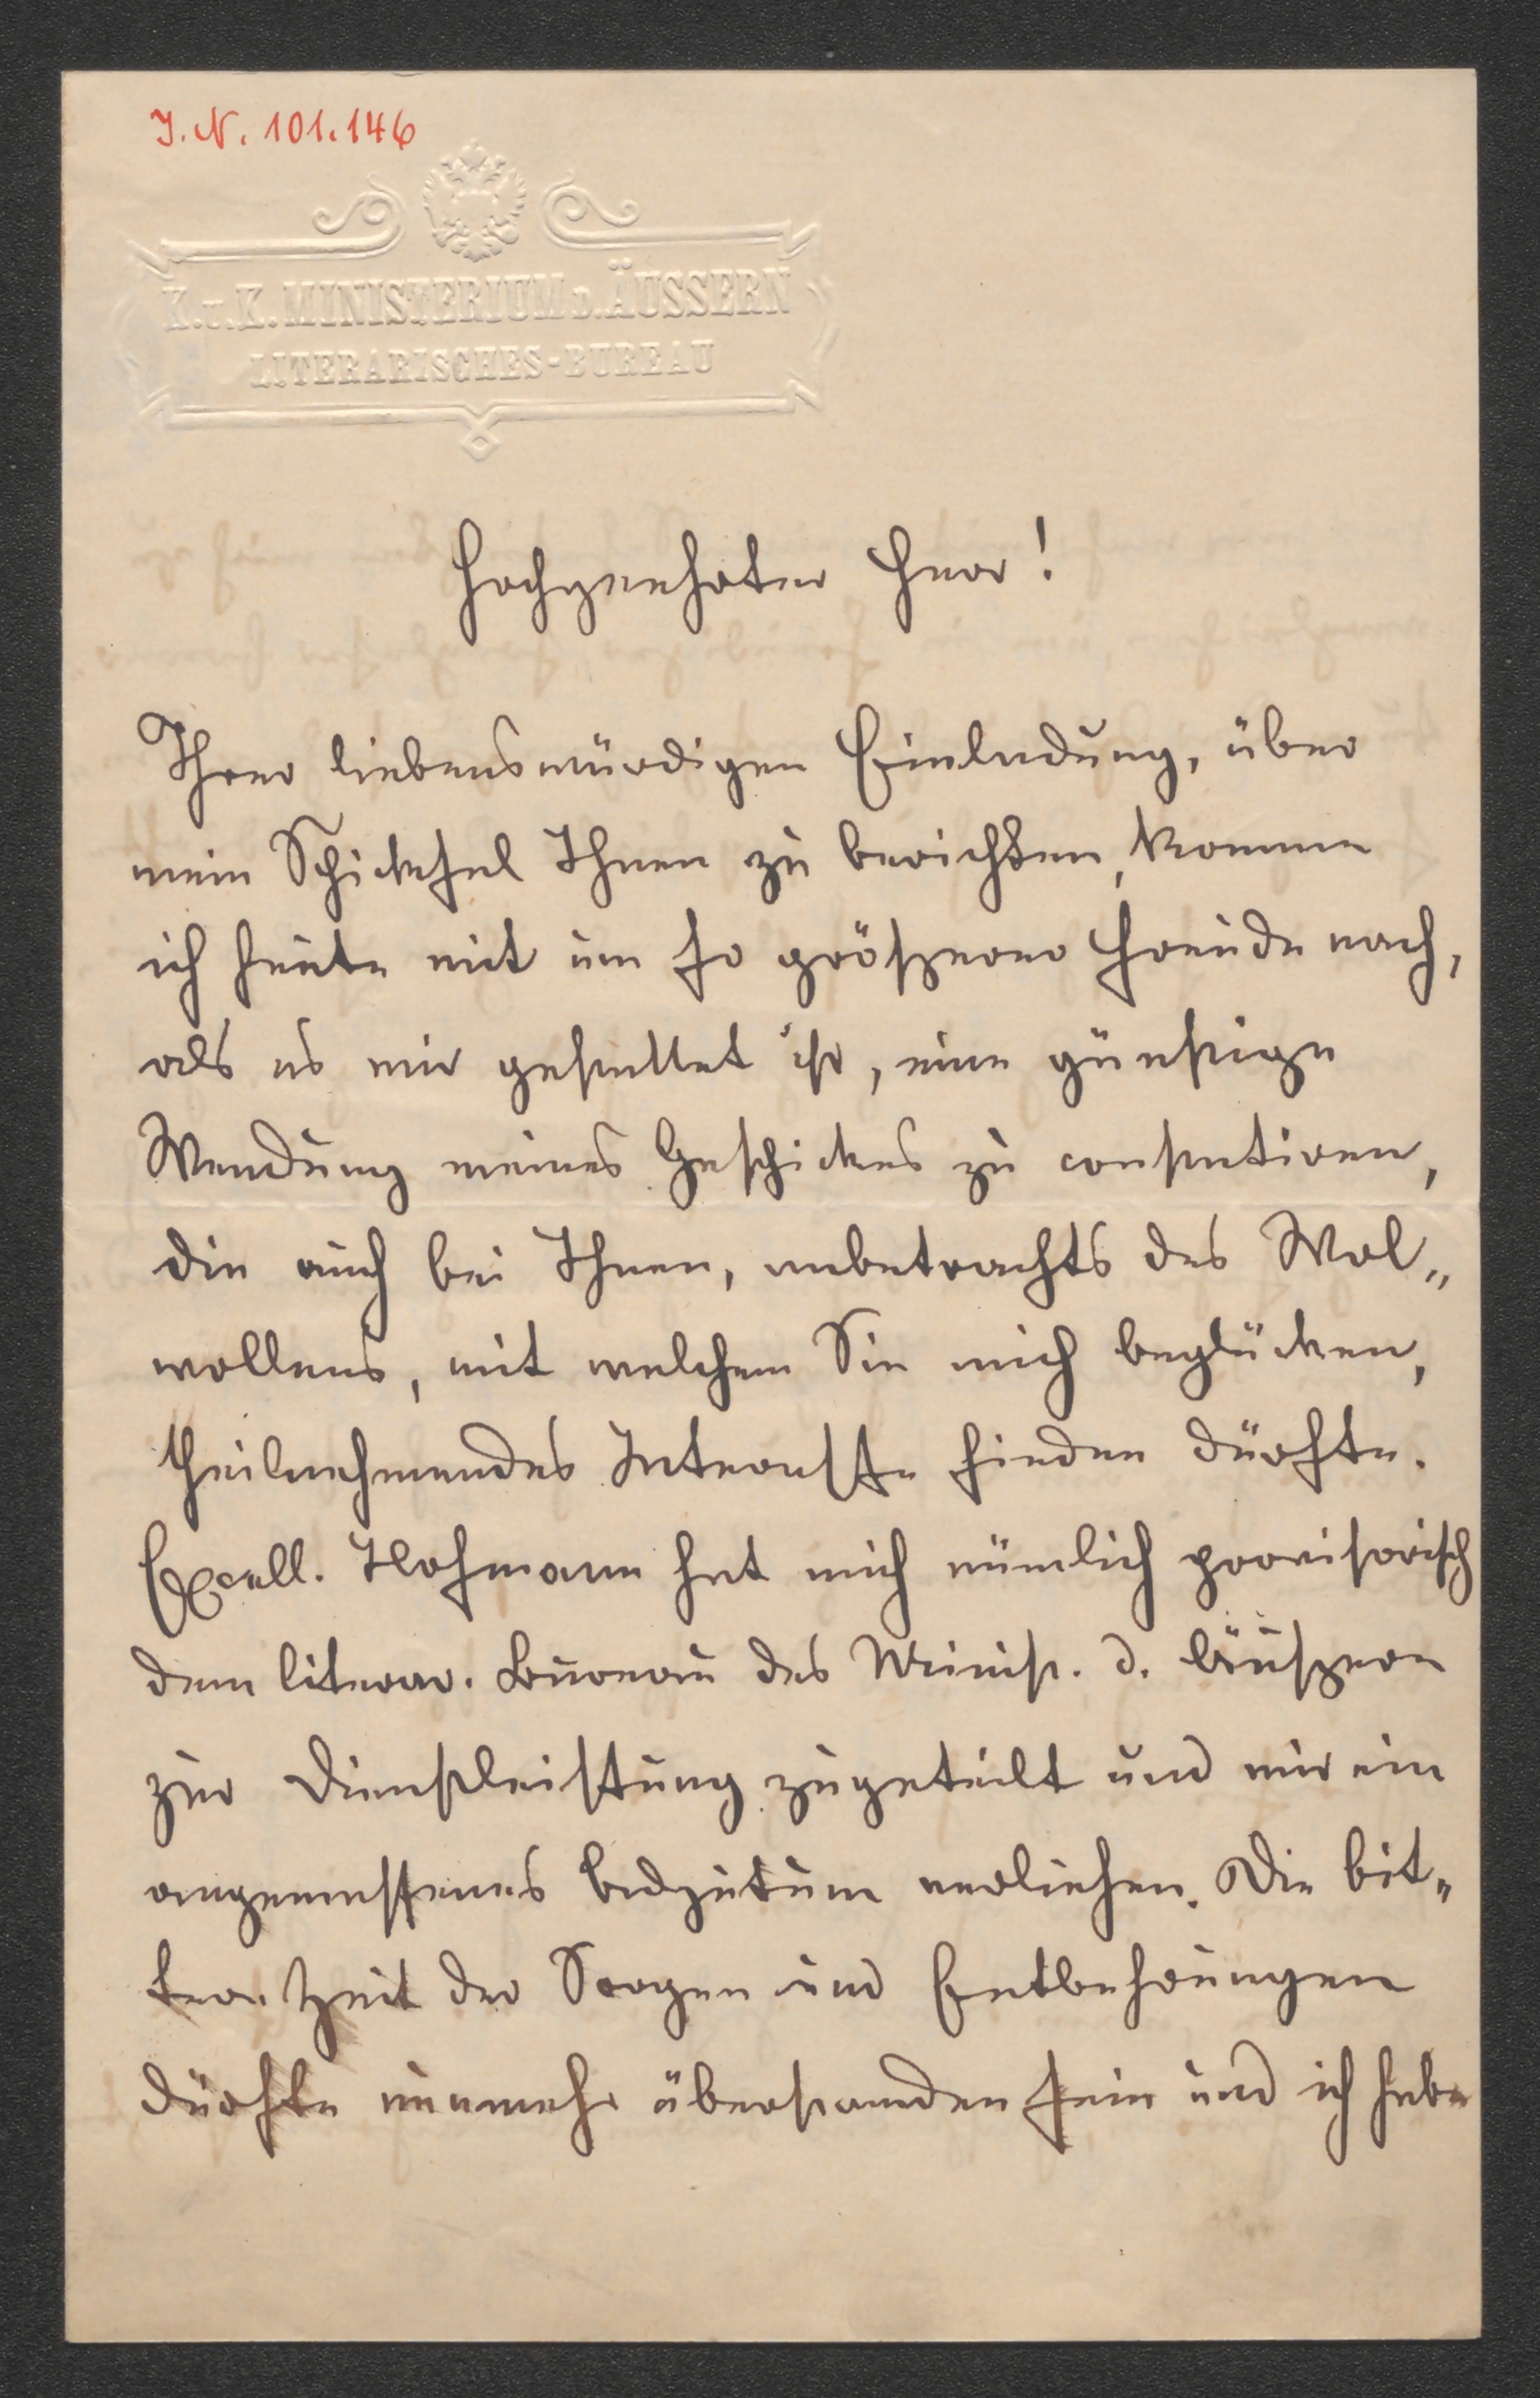 J. N. 101.146
K. u. K. MINISTERIUM D. ÄUSSERN
LITERARISCHES-BUREAU
Hochgeehrter Herr!
Ihrer liebenswürdigen Einladung, über
mein Schicksal Ihnen zu berichten, komme
ich heute mit um so größerer Freude nach,
als es mir gestattet ist, eine günstige
Wendung meines Geschickes zu constatiren,
die auch bei Ihnen, anbetrachts des Wol„
wollens, mit welchem Sie mich beglücken,
theilnehmendes Interesse finden dürfte.
Excell. Hofmann hat mich nämlich provisorisch
dem literar. Bureau des Minist. d. Äußern
zur Dienstleistung zugeteilt und mir ein
angemessenes Adjutum verliehen. Die bit„
tere Zeit der Sorgen und Entbehrungen
dürfte nunmehr überstanden sein und ich habe